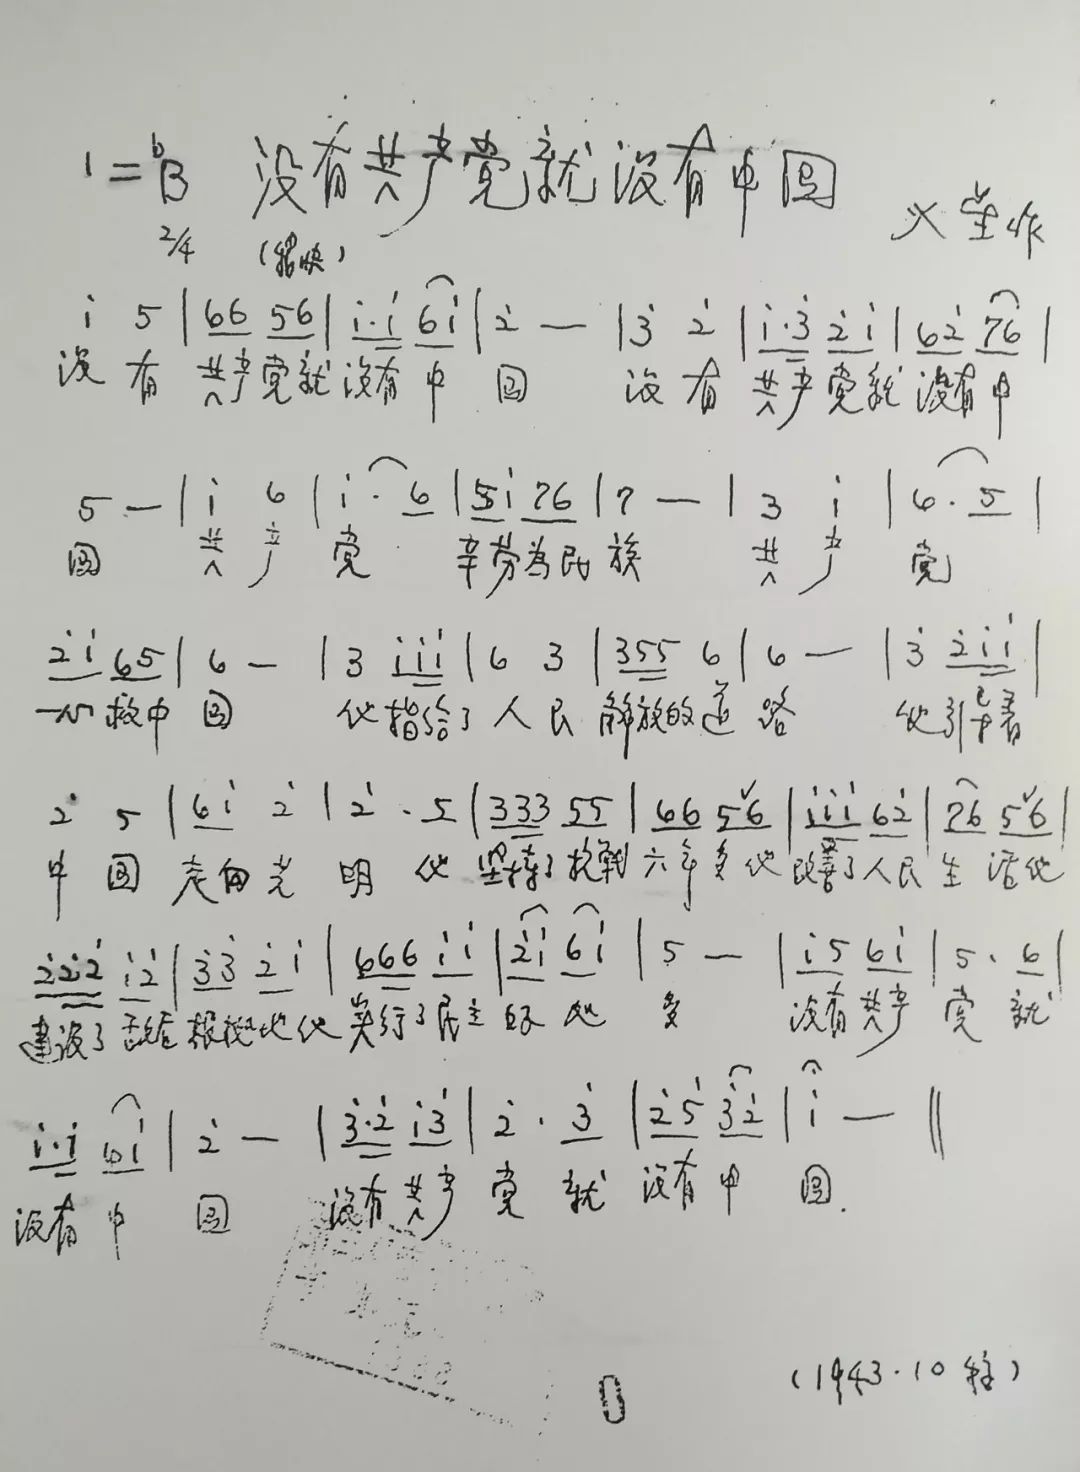 1=♭B 没有共产党就没有中国
2/4 (稍快) 作
i̇ 5 | 66 56 | i̇·i̇ 6i̇ | 2̇ — | 3̇ 2̇ | i̇·3̇ 2̇i̇ | 62̇ 76 |
没有共产党就没有中国 没有共产党就没有中
5 — | i̇ 6 | i̇· 6 | 5i̇ 76 | 7 — | 3 i̇ | 6· 5 |
国 共产党 辛劳为民族 共产党
2̇i̇ 65 | 6 — | 3 i̇i̇i̇ | 6 3 | 355 6 | 6 — | 3̇ 2̇i̇i̇ |
一心救中国 他指给了人民解放的道路 他引导着
2̇ 5 | 6i̇ 2̇ | 2̇· 5 | 333 55 | 66 5ˇ6 | i̇i̇i̇ 62̇ | 76 5ˇ6 |
中国走向光明 他坚持了抗战六年多 他改善了人民生活 他
2̇2̇2̇ i̇2̇ | 3̇3̇ 2̇i̇ | 666 i̇i̇ | 2̇i̇ 6i̇ | 5 — | i̇5 6i̇ | 5· 6 |
建设了敌后根据地 他实行了民主好处多 没有共产党就
i̇·i̇ 6i̇ | 2̇ — | 3̇·2̇ i̇3̇ | 2̇· 3̇ | 2̇5̇ 3̇2̇ | i̇ — ‖
没有中国 没有共产党就没有中国.
(1943·10 稿)